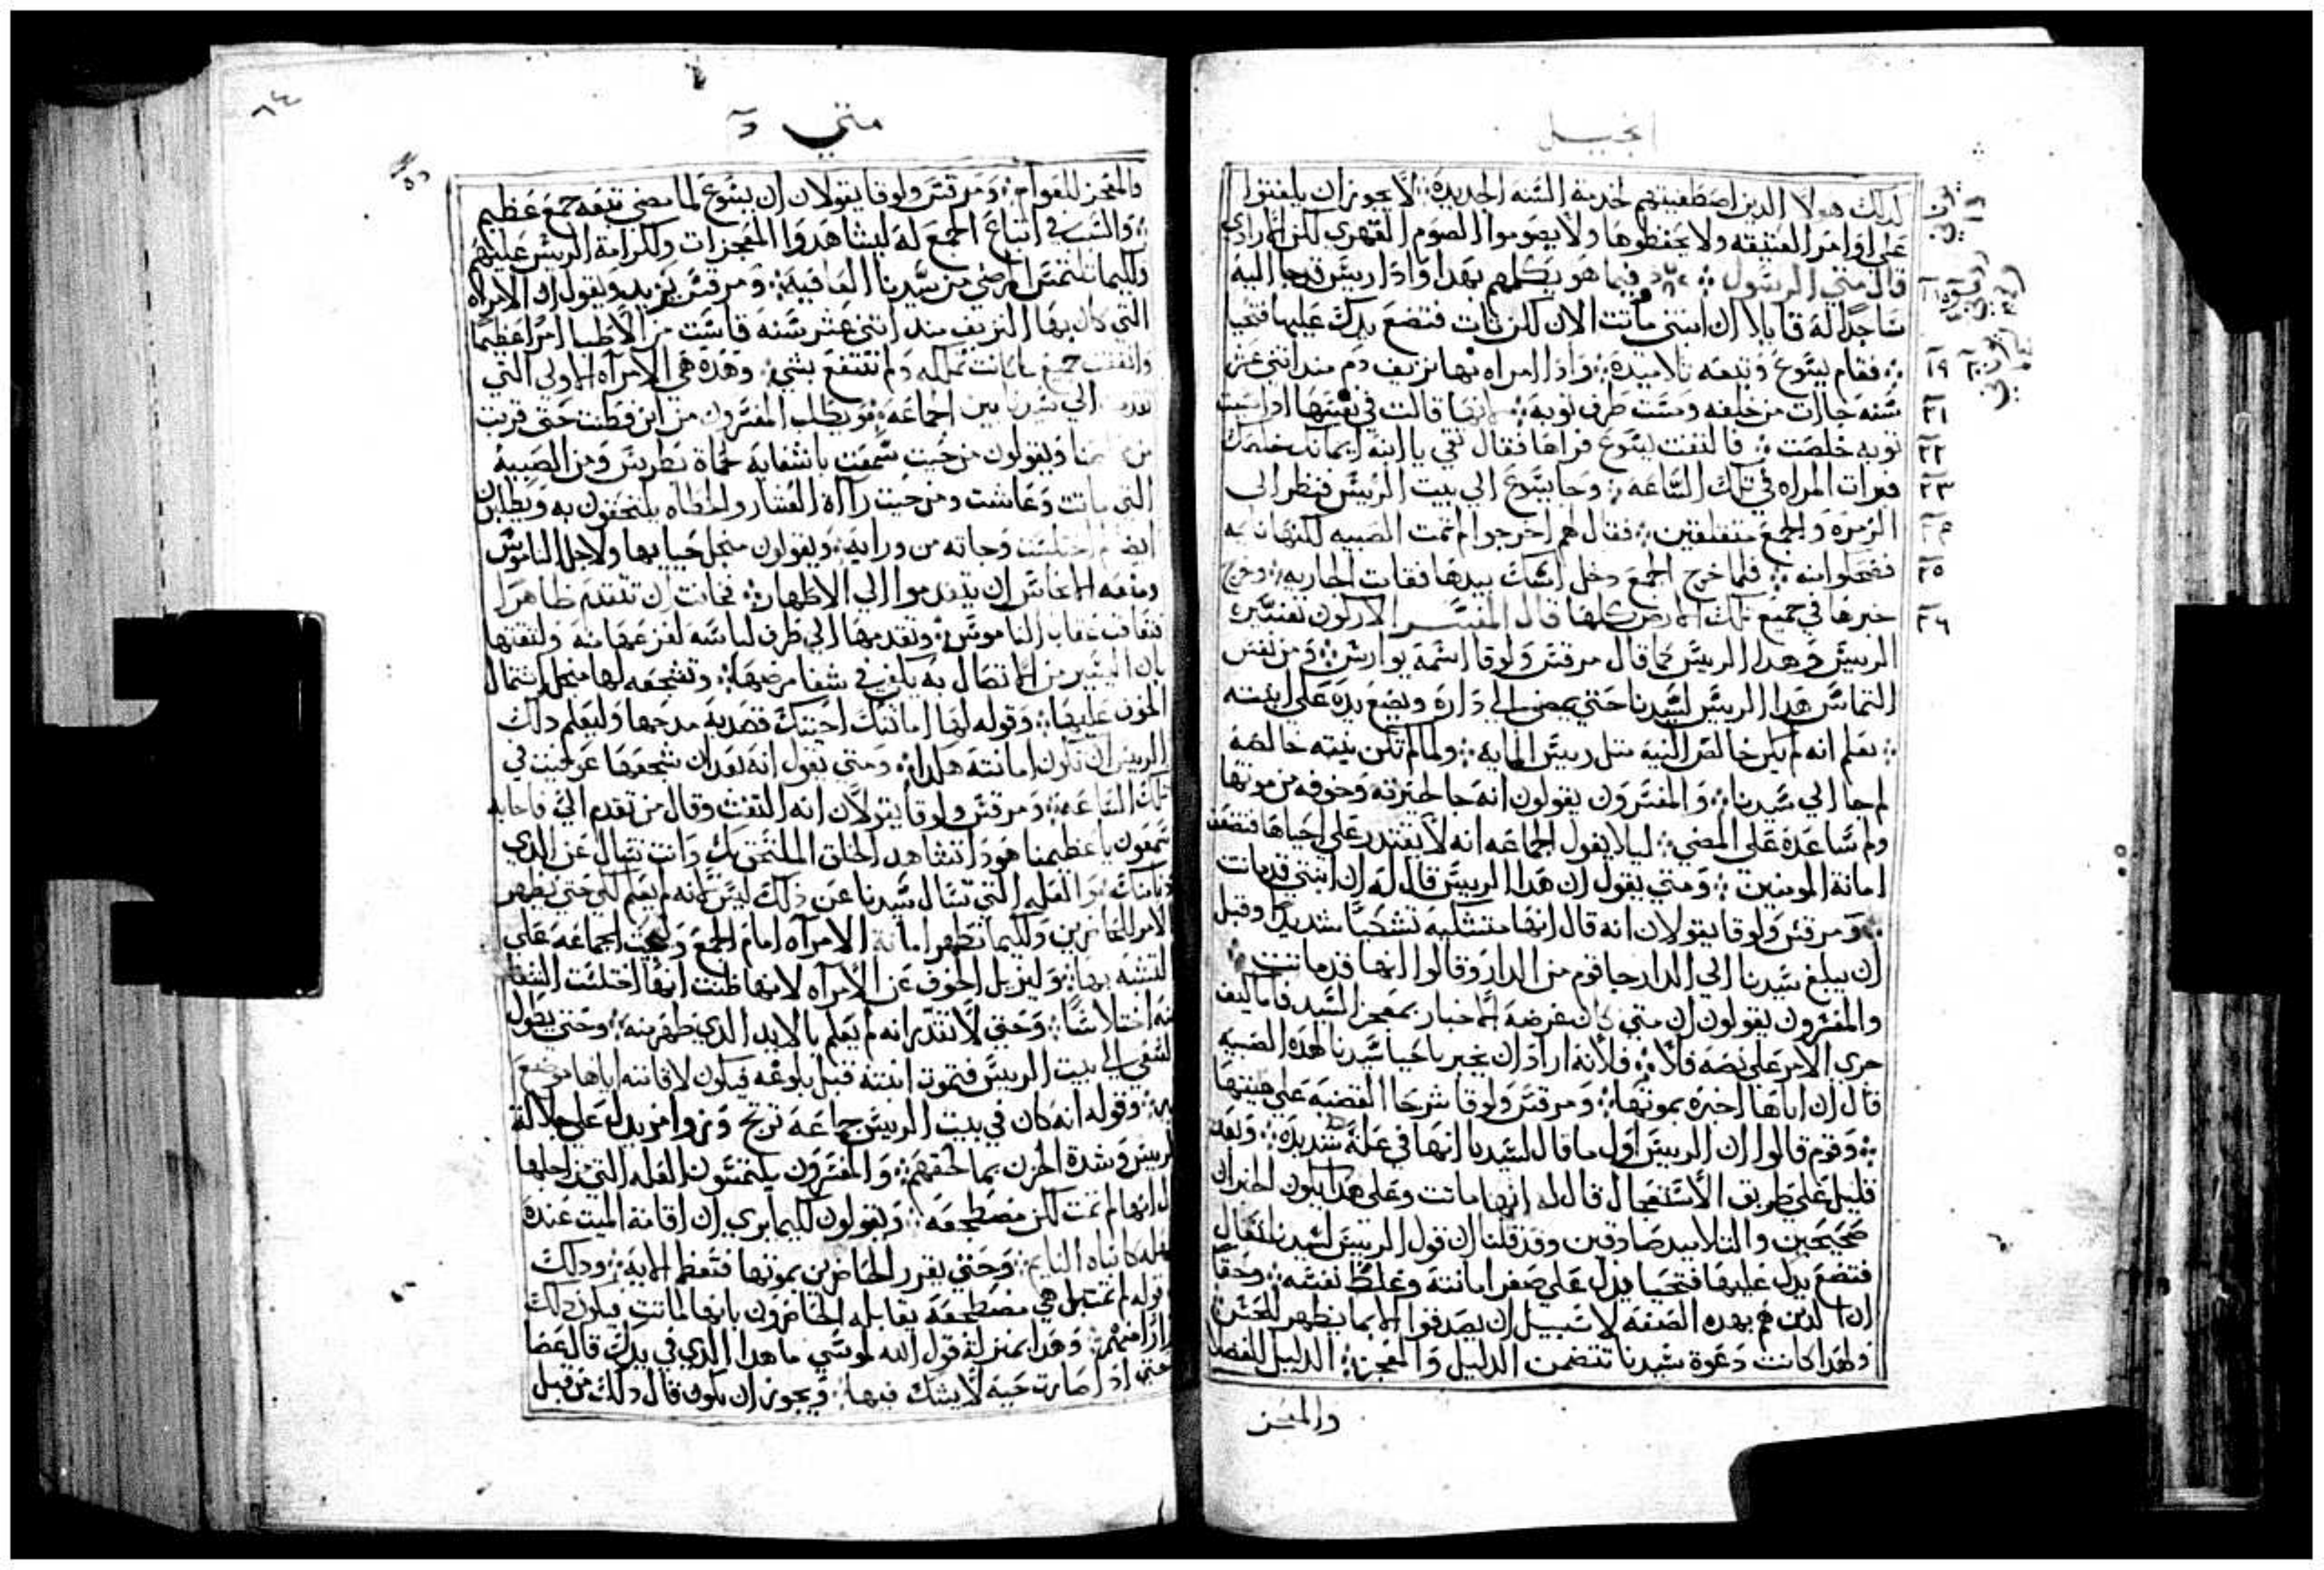 انجيل
كدلك هولا الدين اصطفيتهم لخدمة السنه الجديده لا يجوز ان يلفتوا
على اوامر العتيقه ولا يحفظوها ولا يصوموا الصوم القهري لكن الارادي
قال متي الرسول فيما هو يكلمهم بهدا وادا رييس قد جا اليه
ساجدًا له قايلا ان ابنتي ماتت الان لكن تات فتضع يدك عليها فتحيا
فقام يسوع وتبعه تلاميده وادا امراه بها نزيف دم مند اتني عشر
سنه جات من خلفه ومست طرف توبه لانها قالت في نفسها ادا مسيت
توبه خلصت فالتفت يسوع فراها فقال تقي يا ابنه ايمانك خلصك
فبرات المراه في تلك الساعه وجا يسوع الي بيت الرييس فنظر الى
الزمره والجمع متقلقين فقال لهم اخرجوا لم تمت الصبيه لكنها نايمه
فضحكوا منه فلما خرج الجمع دخل امسك بيدها فقامت الجاريه وخرج
خبرها في جميع تلك الارض كلها قال المفسر الاركون تفسيره
الرييس وهدا الرييس كما قال مرقس ولوقا اسمه يوارش ومن نفس
التماس هدا الرييس لسيدنا حتي يمضي الي داره ويضع يده على ابنته
يعلم انه لم يكن خالص النيه مثل رييس المايه ولما لم تكن نيته خالصه
لم جا الي سيدنا والمفسرون يقولون انه جا لحيرته وخوفه من موتها
ولم ساعده على المضي ليلا يقول الجماعه انه لا يقتدر على احياها فتضعف
امانة المومنين ومتي يقول ان هدا الرييس قال له ان ابنتي قد ماتت
ومرقس ولوقا يقولان انه قال انها متشكيه تشكيًا شديدًا وقبل
ان يبلغ سيدنا الي الدار جا قوم من الدار وقالوا انها قد ماتت
والمفسرون يقولون ان متي كان غرضه الاخبار بمعجز السيد فاما كيف
جري الامر على نصه فلا فلانه اراد ان يخبر باحيا سيدنا لهده الصبيه
قال ان اباها اخبره بموتها ومرقس ولوقا شرحا القضيه على هييتها
وقوم قالوا ان الرييس اول ما قال لسيدنا انها في علة شديده وبعد
قليل على طريق الاستعجال قال له انها ماتت وعلى هدا يكون الخبران
صحيحين والتلاميد صادقين وقد قلنا ان قول الرييس لسيدنا تعال
فتضع يدك عليها فتحيا يدل على صغر امانته وغلظ نفسه وحقًا
ان الدين هم بهده الصفه لا سبيل ان يصدقوا الا بما يظهر للحس
ولهدا كانت دعوة سيدنا تتضمن الدليل والمعجز الدليل للفضلا
والمعجز
متي
فالمعجز للعوام ومرقس ولوقا يقولان ان يسوع لما مضي تبعه جمع عظيم
والسبب في اتباع الجمع له ليشاهدوا المعجزات ولكرامة الرييس عليهم
ولكيما تلتمس المرضي من سيدنا العافيه ومرقس يزيد ويقول ان الامراه
التي كان بها النزيف مند اتني عشر سنه قاست من الاطبا امرًا عظيمًا
وانفقت جميع ما كانت تملكه ولم تنتفع بشي وهده هي الامراه الاولي التي
تقدمت الي سيدنا بين الجماعه ويطلب المفسرون من اين فطنت حتى قربت
من ويقولون من حيت سمعت باشفايه لحماة بطرس ومن الصبيه
التي ماتت وعاشت ومن حيت رااه العشار والخطاه يلتحقون به ويطلبون
ايضا لم اختلست وجاته من ورايه ويقولون من اجل حيايها ولاجل الناموس
ومنعه الانجاس ان يتقدموا الي الاطهار فخافت ان تتقدم ظاهرًا
فتعاقب عقاب الناموس وتقدمها الي طرف لباسه لفزعها منه ولتقتها
بان اليسير من الاتصال به يكفي في شفا مرضها وتشجيعه لها من اجل اشتمال
الخوف عليها وقوله لها امانتك احيتك قصد به مدحها وليعلم دلك
الرييس ان تكون امانته هكدا ومتي يقول انه بعد ان شجعها عوفيت في
تلك الساعه ومرقس ولوقا يقولان انه التفت وقال من تقدم الي فاجابه
شمعون يا عظيمنا هودا تشاهد الخلق الملتحق بك وانت تسال عن الدي
دنا منك والعله التي سال سيدنا عن دلك ليس لانه لم يعلم لكن حتي يظهر
الامر للحاضرين ولكيما تظهر امانة الامراه امام الجمع ويحت الجماعه على
التشبه بها وليزيل الخوف عن الامراه لانها ظنت انها اختلست الشفا
منه اختلاسًا وحتي لا تقدر انه لم يعلم بالايد الدي ظهر منه وحتي يطول
السعي الي بيت الرييس فتموت ابنته قبل بلوغه فيكون لاقامته اياها موضع
وقوله انه كان في بيت الرييس جماعه تنوح وزمر يدل على جلالة
الرييس وشدة الحزن بما لحقهم والمفسرون يلتمسون العله التي من اجلها
قال انها لم تمت لكن مضطجعه ويقولون لكيما يري ان اقامة الميت عنده
سهله كانباه النايم وحتي يقرر الحاضرين بموتها فتعظم الايه ودلك
بقوله لم تمت بل هي مضطجعه يقابله الحاضرون بانها ماتت فيكون دلك
اقرارًا منهم وهدا بمنزلة قول الله لموسي ما هدا الدي في يدك قال عصا
حتى ادا صارت حيه لا يشك فيها ويجوز ان يكون قال دلك من قبل